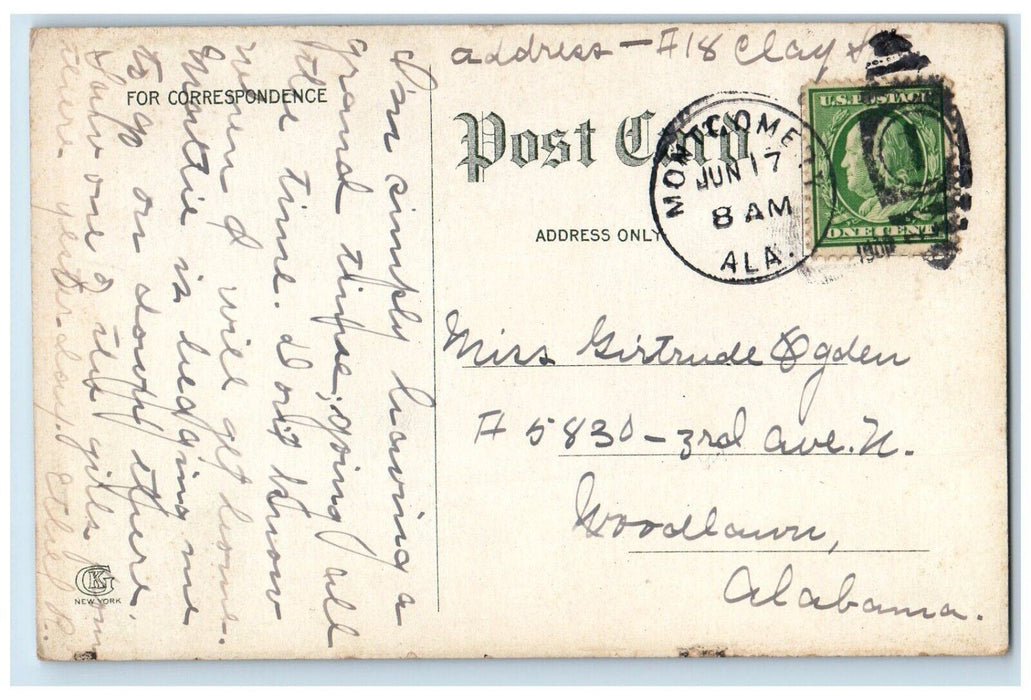 address - #18 Clay St
FOR CORRESPONDENCE
Post Card
ADDRESS ONLY
MONTGOMERY
JUN 17
8 AM
ALA.
U.S. POSTAGE
ONE CENT
Miss Girtrude Ogden
# 5830 - 3rd Ave. N.
Woodlawn,
Alabama.
I'm simply having a
grand time, going all
the time. Don't know
when I will get home.
Mattie is begging me
to go on down there.
Saw one of the girls from
there yesterday. Ethel R.
GK
NEW YORK